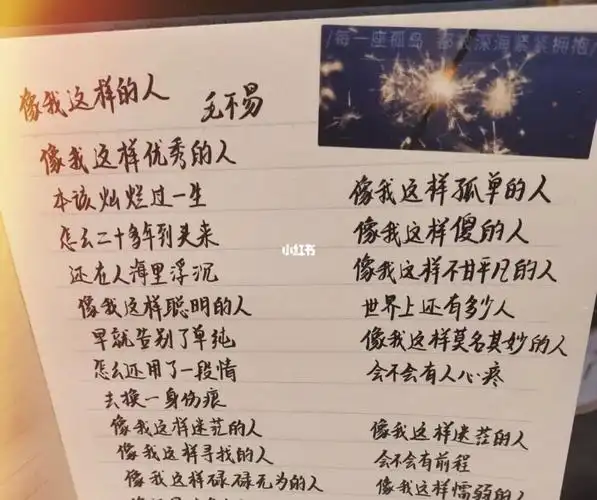 /每一座孤岛 都被深海紧紧拥抱/
像我这样的人
毛不易
像我这样优秀的人
本该灿烂过一生
怎么二十多年到头来
还在人海里浮沉
像我这样聪明的人
早就告别了单纯
怎么还用了一段情
去换一身伤痕
像我这样迷茫的人
像我这样寻找的人
像我这样碌碌无为的人
像我这样孤单的人
像我这样傻的人
像我这样不甘平凡的人
世界上还有多少人
像我这样莫名其妙的人
会不会有人心疼
像我这样迷茫的人
会不会有前程
像我这样懦弱的人
小红书